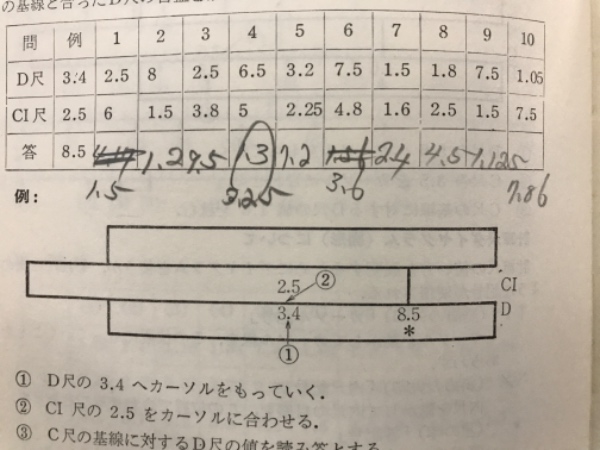 の基線と合ったD尺の
問 例 1 2 3 4 5 6 7 8 9 10
D尺 3.4 2.5 8 2.5 6.5 3.2 7.5 1.5 1.8 7.5 1.05
CI尺 2.5 6 1.5 3.8 5 2.25 4.8 1.6 2.5 1.5 7.5
答 8.5 1.2 9.5 1.3 7.2 2.4 4.5 1.125
1.5 3.25 3.6 7.86
例:
2.5 ② CI
3.4 8.5 D
*
①
① D尺の 3.4 へカーソルをもっていく.
② CI 尺の 2.5 をカーソルに合わせる.
③ C尺の基線に対するD尺の値を読み答とする